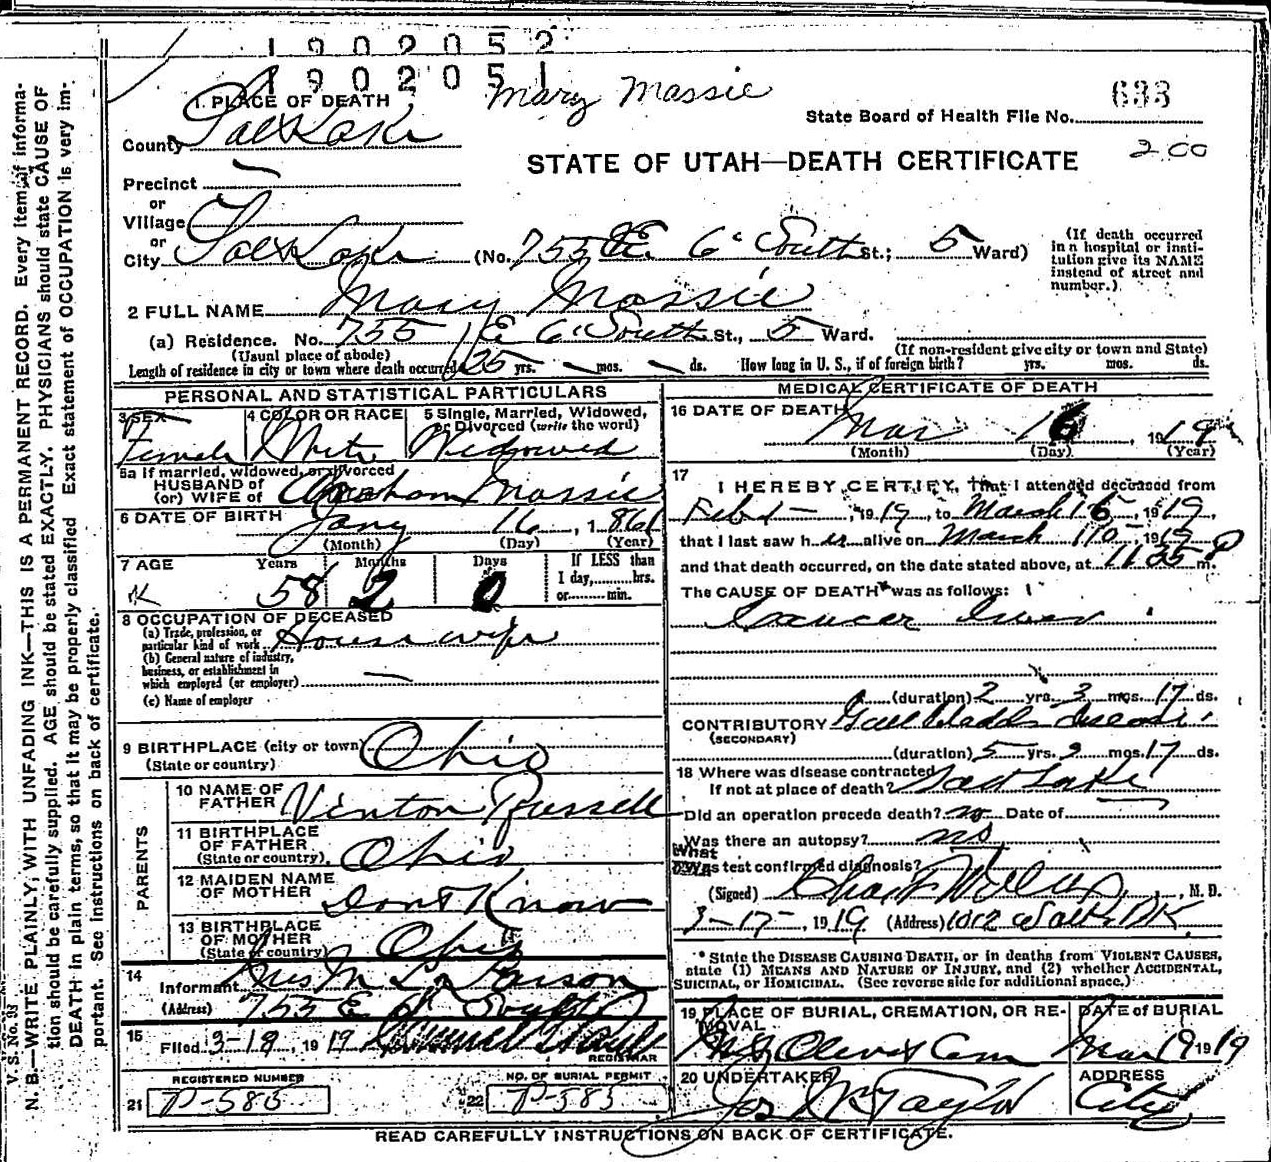 1902052
1902051
Mary Massie
633
1. PLACE OF DEATH
State Board of Health File No.
County Salt Lake
STATE OF UTAH—DEATH CERTIFICATE
200
Precinct —
or
Village
or
City Salt Lake (No. 755 E. 6 South St.; 5 Ward)
(If death occurred in a hospital or insti-
tution give its NAME
instead of street and
number.)
2 FULL NAME Mary Massie
(a) Residence. No. 755 E 6 South St., 5 Ward.
(Usual place of abode)
(If non-resident give city or town and State)
Length of residence in city or town where death occurred 25 yrs. — mos. — ds. How long in U. S., if of foreign birth? yrs. mos. ds.
PERSONAL AND STATISTICAL PARTICULARS
3 SEX
Female
4 COLOR OR RACE
White
5 Single, Married, Widowed,
or Divorced (write the word)
Widowed
5a If married, widowed, or divorced
HUSBAND of
(or) WIFE of Abraham Massie
6 DATE OF BIRTH Jany 16, 1861
(Month) (Day) (Year)
7 AGE Years Months Days If LESS than
1 day,........hrs.
or.........min.
K 58 2 0
8 OCCUPATION OF DECEASED
(a) Trade, profession, or
particular kind of work Housewife
(b) General nature of industry,
business, or establishment in
which employed (or employer) —
(c) Name of employer
9 BIRTHPLACE (city or town) Ohio
(State or country)
PARENTS
10 NAME OF
FATHER Vinton Russell
11 BIRTHPLACE
OF FATHER
(State or country) Ohio
12 MAIDEN NAME
OF MOTHER Dont Know
13 BIRTHPLACE
OF MOTHER
(State or country) Ohio
14
Informant Mrs M L Parson
(Address) 755 E 6 South
15 Filed 3-18, 1919
REGISTRAR
REGISTERED NUMBER
21 P-583
NO. OF BURIAL PERMIT
22 P-583
MEDICAL CERTIFICATE OF DEATH
16 DATE OF DEATH
Mar 16, 1919
(Month) (Day) (Year)
17
I HEREBY CERTIFY, That I attended deceased from
Feb 1—, 1919, to March 16, 1919,
that I last saw her alive on March 16, 1919
and that death occurred, on the date stated above, at 11 35 P m.
The CAUSE OF DEATH* was as follows:
Cancer Liver
(duration) 2 yrs. 3 mos. 17 ds.
CONTRIBUTORY Gall bladder disease
(SECONDARY)
(duration) 5 yrs. 9 mos. 17 ds.
18 Where was disease contracted
If not at place of death? Salt Lake
Did an operation precede death? no Date of
Was there an autopsy? no
What
test confirmed diagnosis?
(Signed) M. D.
3-17-, 1919 (Address) 1012 Walker BK.
* State the DISEASE CAUSING DEATH, or in deaths from VIOLENT CAUSES,
state (1) MEANS AND NATURE OF INJURY, and (2) whether ACCIDENTAL,
SUICIDAL, or HOMICIDAL. (See reverse side for additional space.)
19 PLACE OF BURIAL, CREMATION, OR RE-
MOVAL
Mt Olivet Cem
DATE of BURIAL
Mar 19 1919
20 UNDERTAKER
Jos Taylor
ADDRESS
City
READ CAREFULLY INSTRUCTIONS ON BACK OF CERTIFICATE.
V. S. No. 93
N. B.—WRITE PLAINLY, WITH UNFADING INK—THIS IS A PERMANENT RECORD. Every item of informa-
tion should be carefully supplied. AGE should be stated EXACTLY. PHYSICIANS should state CAUSE OF
DEATH in plain terms, so that it may be properly classified. Exact statement of OCCUPATION is very im-
portant. See instructions on back of certificate.